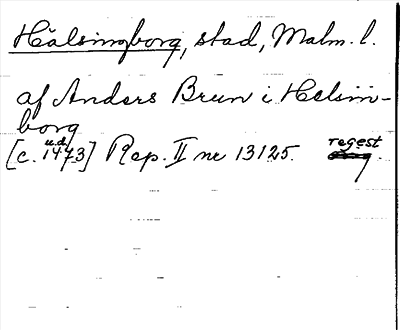 Hälsingborg, stad, Malm. l.
af Anders Brun i Helsim-
borg
[c. u.d. 1473] Rep. II nr 13125. regest.